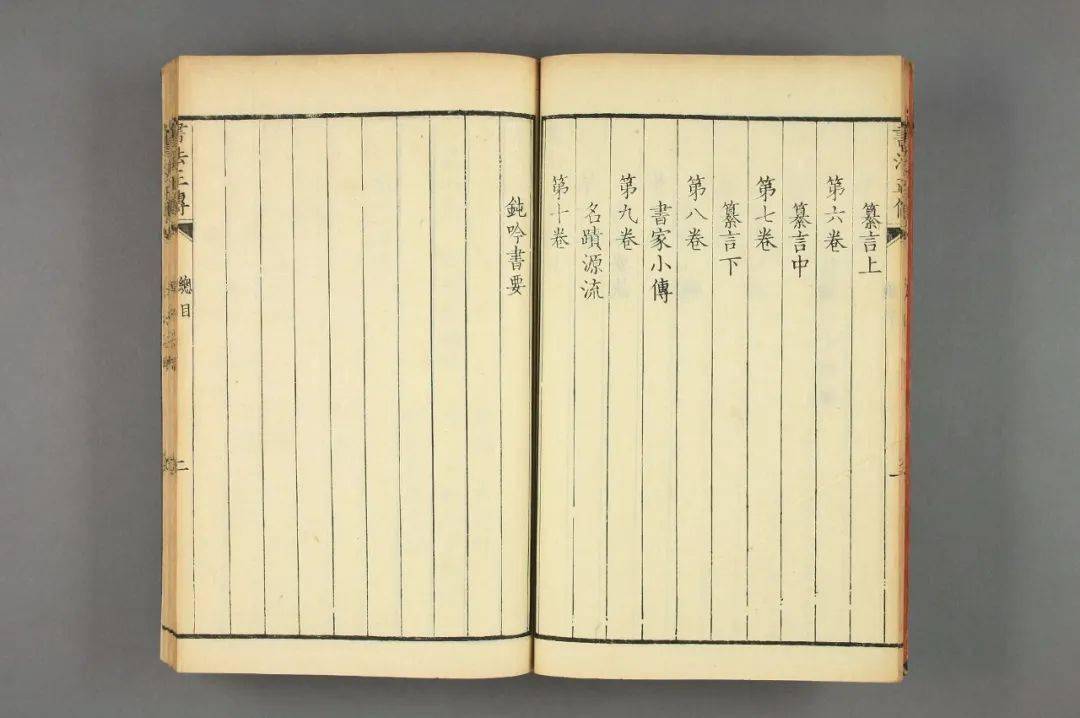 纂言上
第六卷
纂言中
第七卷
纂言下
第八卷
書家小傳
第九卷
名蹟源流
第十卷
鈍吟書要
書法正傳
總目
二